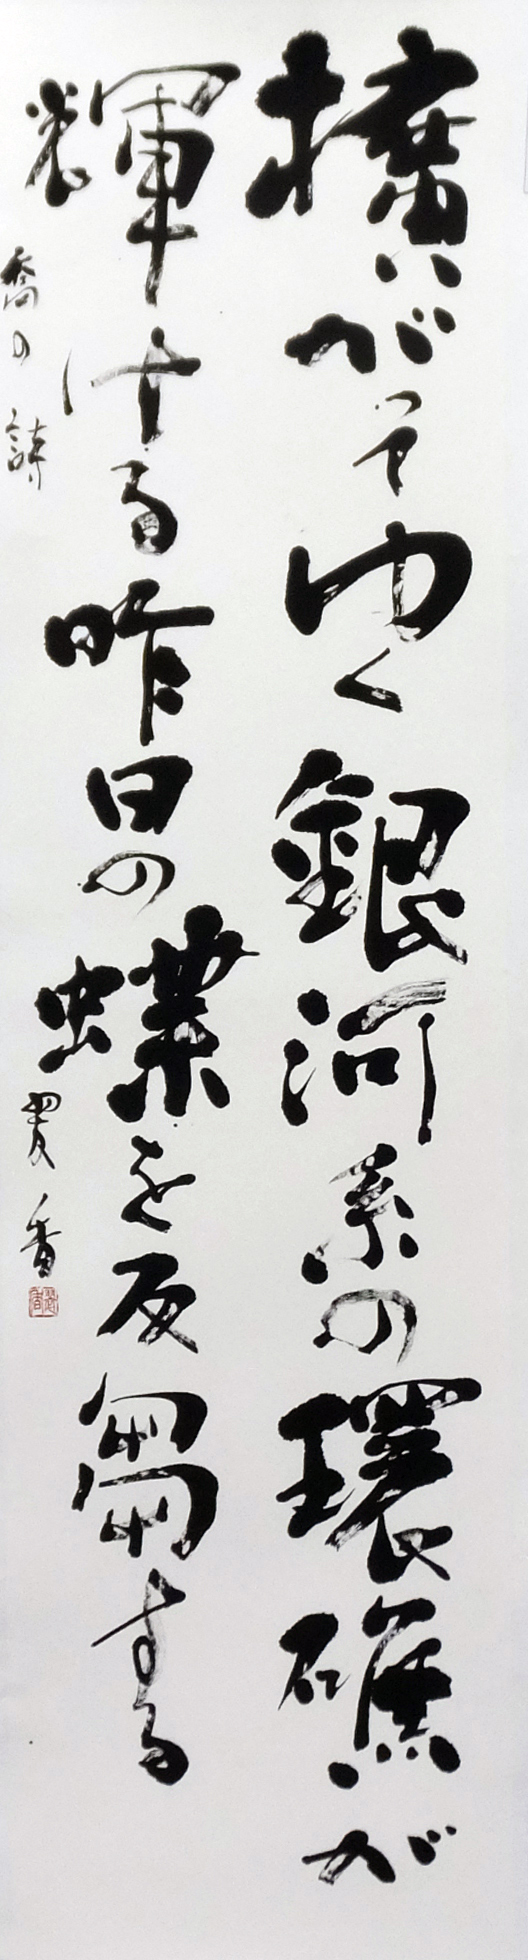 擴がってゆく銀河系の環礁が
輝ける昨日の蝶を反芻する
喬の詩
香